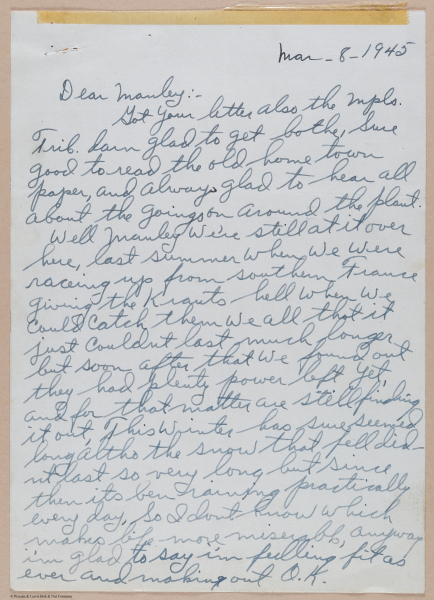 Mar - 8 - 1945
Dear Manley:-
Got your letter also the Mpls.
Trib. darn glad to get bothe, sure
good to read the old home town
paper, and always glad to hear all
about the goingson around the plant.
Well Manley we're still at it over
here, last summer when we were
racing up from southern France
giving the Krauts hell when we
could catch them we all that it
just couldnt last much longer
but soon after that we found out
they had plenty power left yet,
and for that matter are still finding
it out, This winter has sure seemed
long altho the snow that fell did-
nt last so very long but since
then its ben raining practically
every day, So I dont know which
makes life more miserabb, anyway
i'm glad to say i'm feelling fit as
ever and making out O.K.